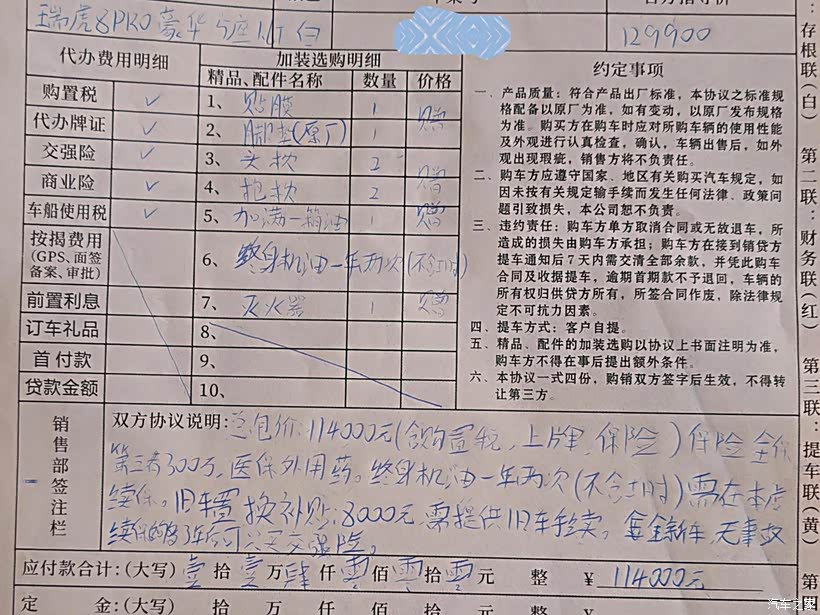 瑞虎8PRO 豪华 5座 1.6T 白 129900
代办费用明细 加装选购明细 约定事项
精品、配件名称 数量 价格
购置税 ✓ 1、贴膜 1 赠
代办牌证 ✓ 2、脚垫(原厂) 1
交强险 ✓ 3、头枕 2
商业险 ✓ 4、抱枕 2 赠
车船使用税 ✓ 5、加满一箱油 1 赠
按揭费用
(GPS、面签
备案、审批)
6、终身机油一年两次(不含工时)
前置利息 7、灭火器 1 赠
订车礼品 8、
首付款 9、
贷款金额 10、
一、产品质量：符合产品出厂标准，本协议之标准规
格配备以原厂为准，如有变动，以原厂发布规格
为准。购买方在购车时应对所购车辆的使用性能
及外观进行认真检查，确认，车辆出售后，如外
观出现瑕疵，销售方将不负责任。
二、购车方应遵守国家、地区有关购买汽车规定，如
因未按有关规定输手续而发生任何法律、政策问
题引致损失，本公司恕不负责。
三、违约责任：购车方单方取消合同或无故退车，所
造成的损失由购车方承担；购车方在接到销贷方
提车通知后7天内需交清全部余款，并凭此购车
合同及收据提车，逾期首期款不予退回，车辆的
所有权归供贷方所有，所签合同作废，除法律规
定不可抗力因素。
四、提车方式：客户自提。
五、精品、配件的加装选购以协议上书面注明为准，
购车方不得在事后提出额外条件。
六、本协议一式四份，购销双方签字后生效，不得转
让第三方。
销售部签注栏
双方协议说明:总包价:114000元(含购置税、上牌、保险)保险全保
第三者300万，医保外用药。终身机油一年两次(不含工时)需在本店
续保。旧车置换补贴:8000元需提供旧车手续。 新车,无事故
续保的
应付款合计:(大写)壹拾壹万肆仟零佰零拾零元 整 ¥ 114000元
定 金:(大写) 拾 万 仟 佰 拾 元 整 ¥
：存根联(白) 第二联：财务联(红) 第三联：提车联(黄) 第
汽车之家